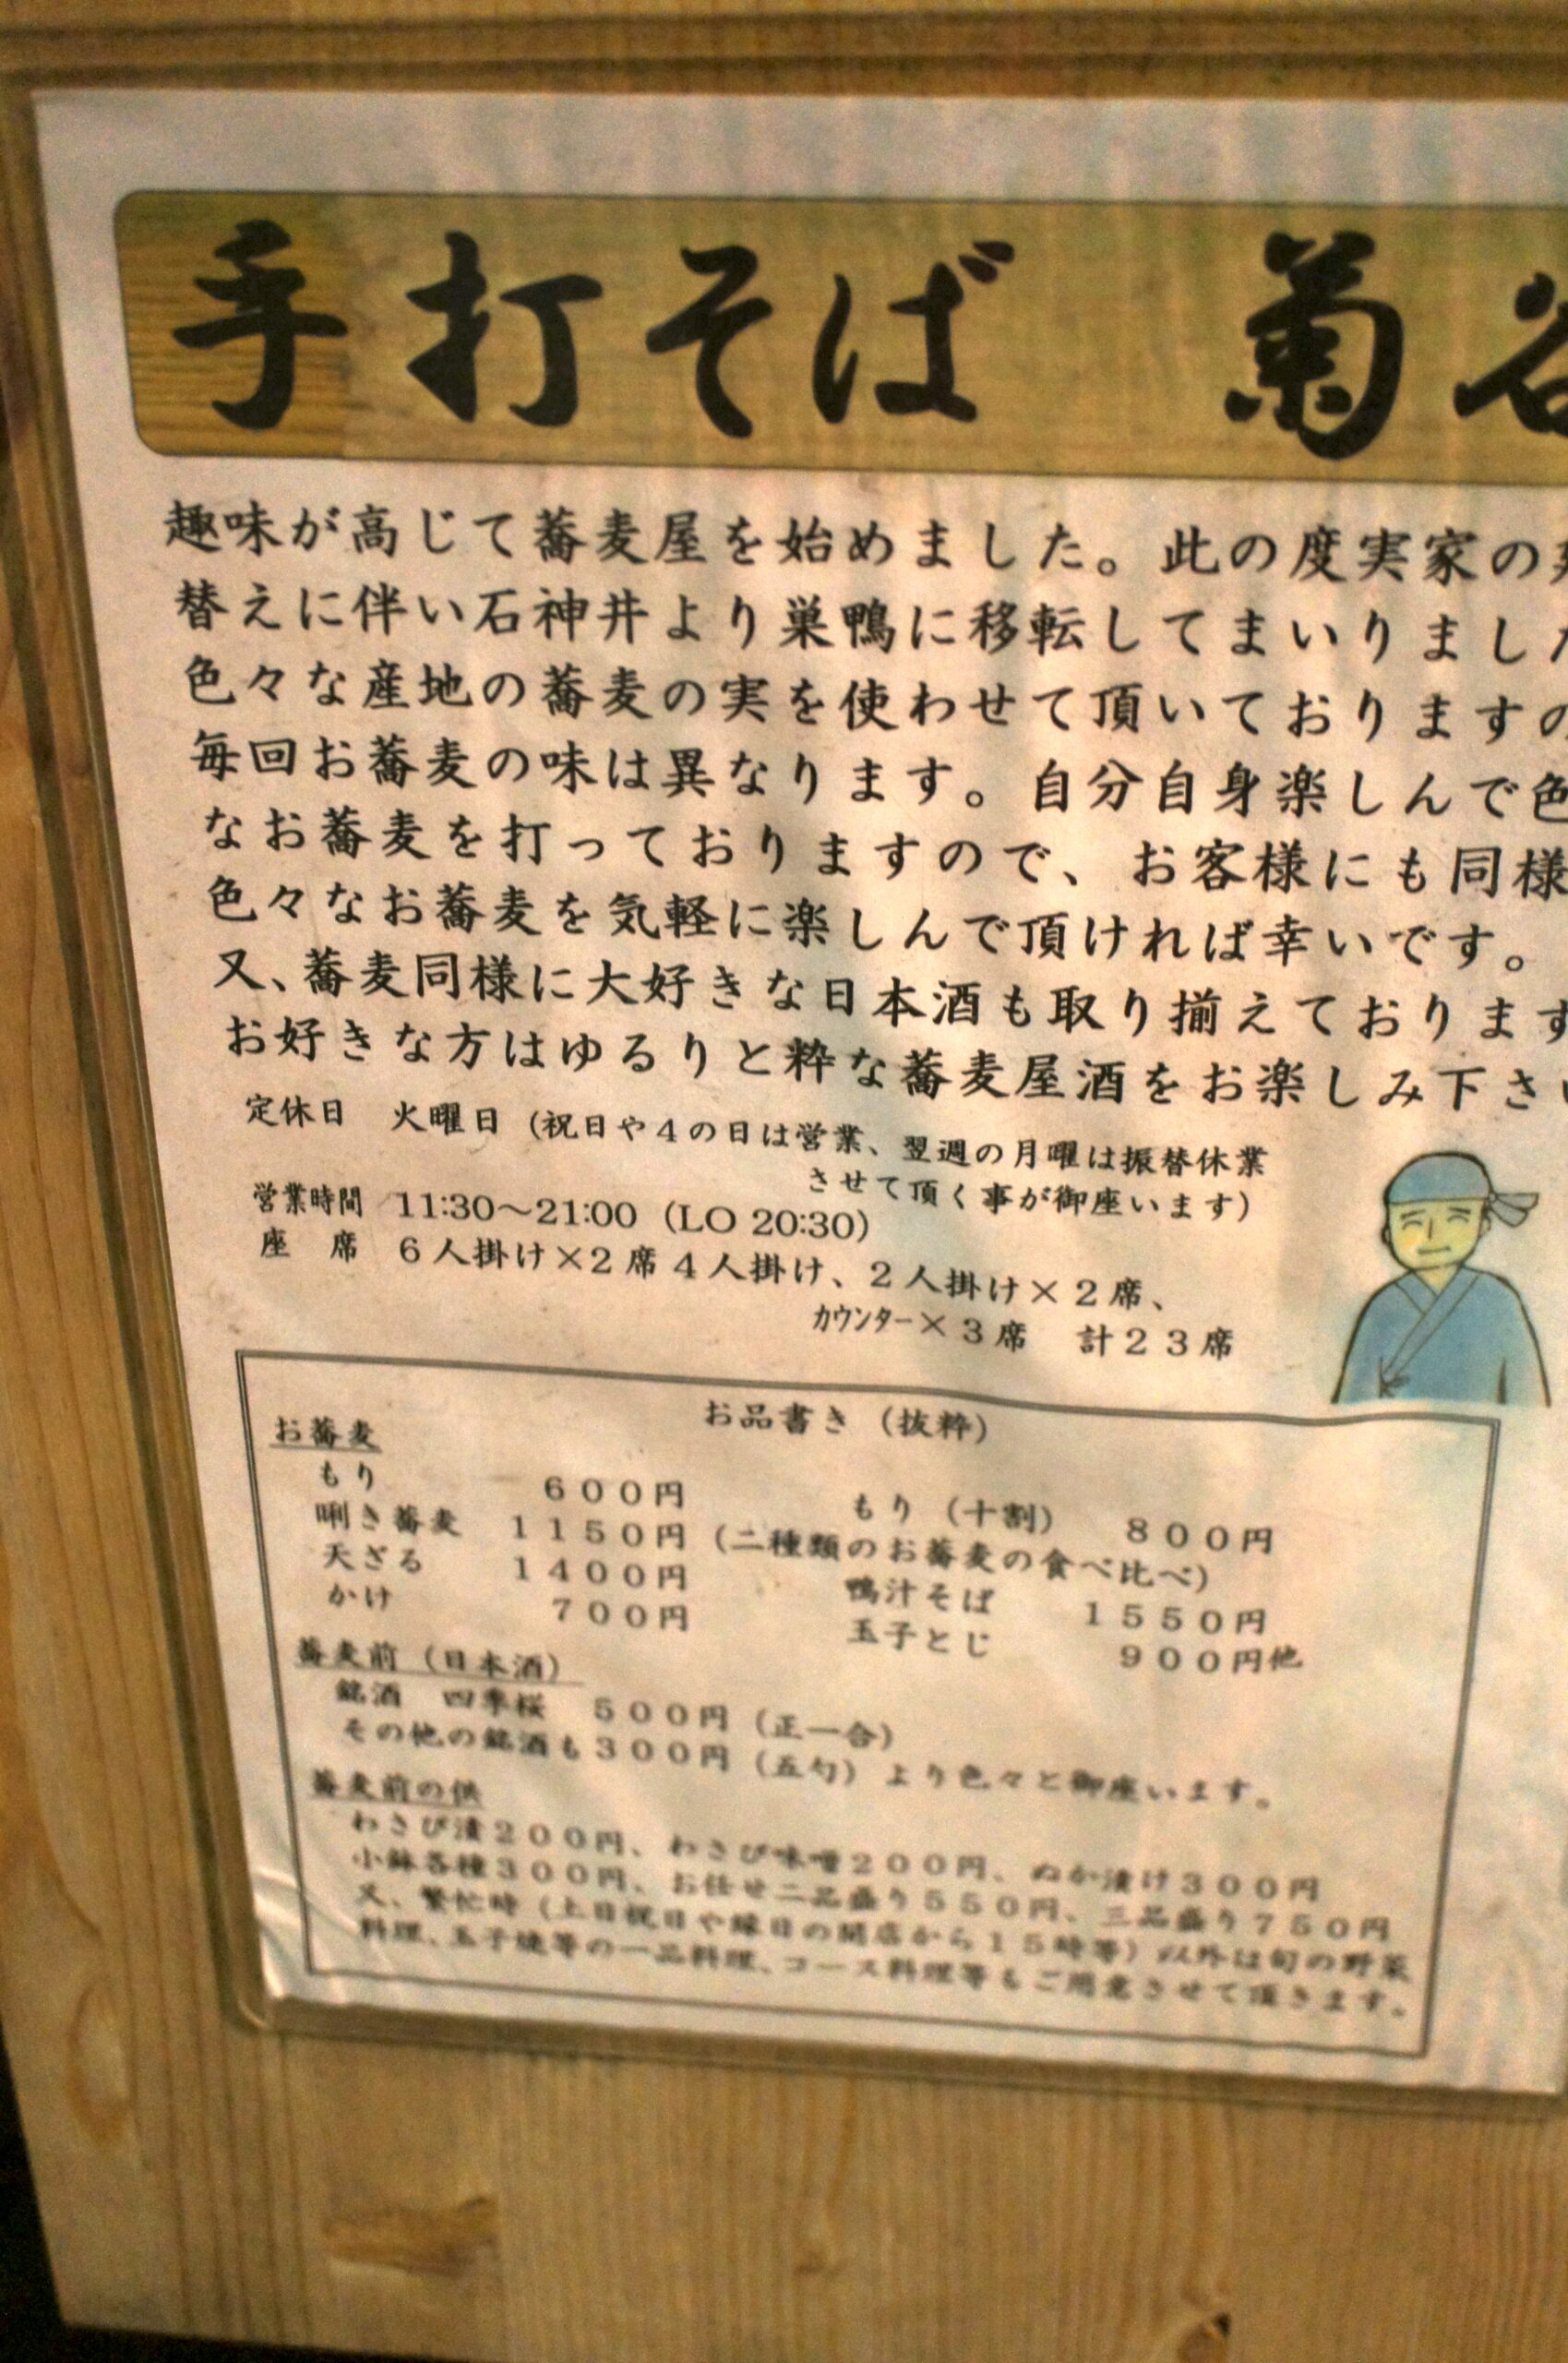 手打そば 菊谷
趣味が高じて蕎麦屋を始めました。此の度実家の
替えに伴い石神井より巣鴨に移転してまいりました
色々な産地の蕎麦の実を使わせて頂いておりますの
毎回お蕎麦の味は異なります。自分自身楽しんで色
なお蕎麦を打っておりますので、お客様にも同様
色々なお蕎麦を気軽に楽しんで頂ければ幸いです。
又、蕎麦同様に大好きな日本酒も取り揃えております
お好きな方はゆるりと粋な蕎麦屋酒をお楽しみ下さい
定休日 火曜日（祝日や４の日は営業、翌週の月曜は振替休業
させて頂く事が御座います）
営業時間 11:30～21:00（LO 20:30）
座 席 ６人掛け×２席４人掛け、２人掛け×２席、
ｶｳﾝﾀｰ×３席 計２３席
お品書き（抜粋）
お蕎麦
もり ６００円 もり（十割） ８００円
唎き蕎麦 １１５０円（二種類のお蕎麦の食べ比べ）
天ざる １４００円 鴨汁そば １５５０円
かけ ７００円 玉子とじ ９００円他
蕎麦前（日本酒）
銘酒 四季桜 ５００円（正一合）
その他の銘酒も３００円（五勺）より色々と御座います。
蕎麦前の供
わさび漬２００円、わさび味噌２００円、ぬか漬け３００円
小鉢各種３００円、お任せ二品盛り５５０円、三品盛り７５０円
又、繁忙時（土日祝日や縁日の開店から１５時等）以外は旬の野菜
料理、玉子焼等の一品料理、コース料理等もご用意させて頂きます。